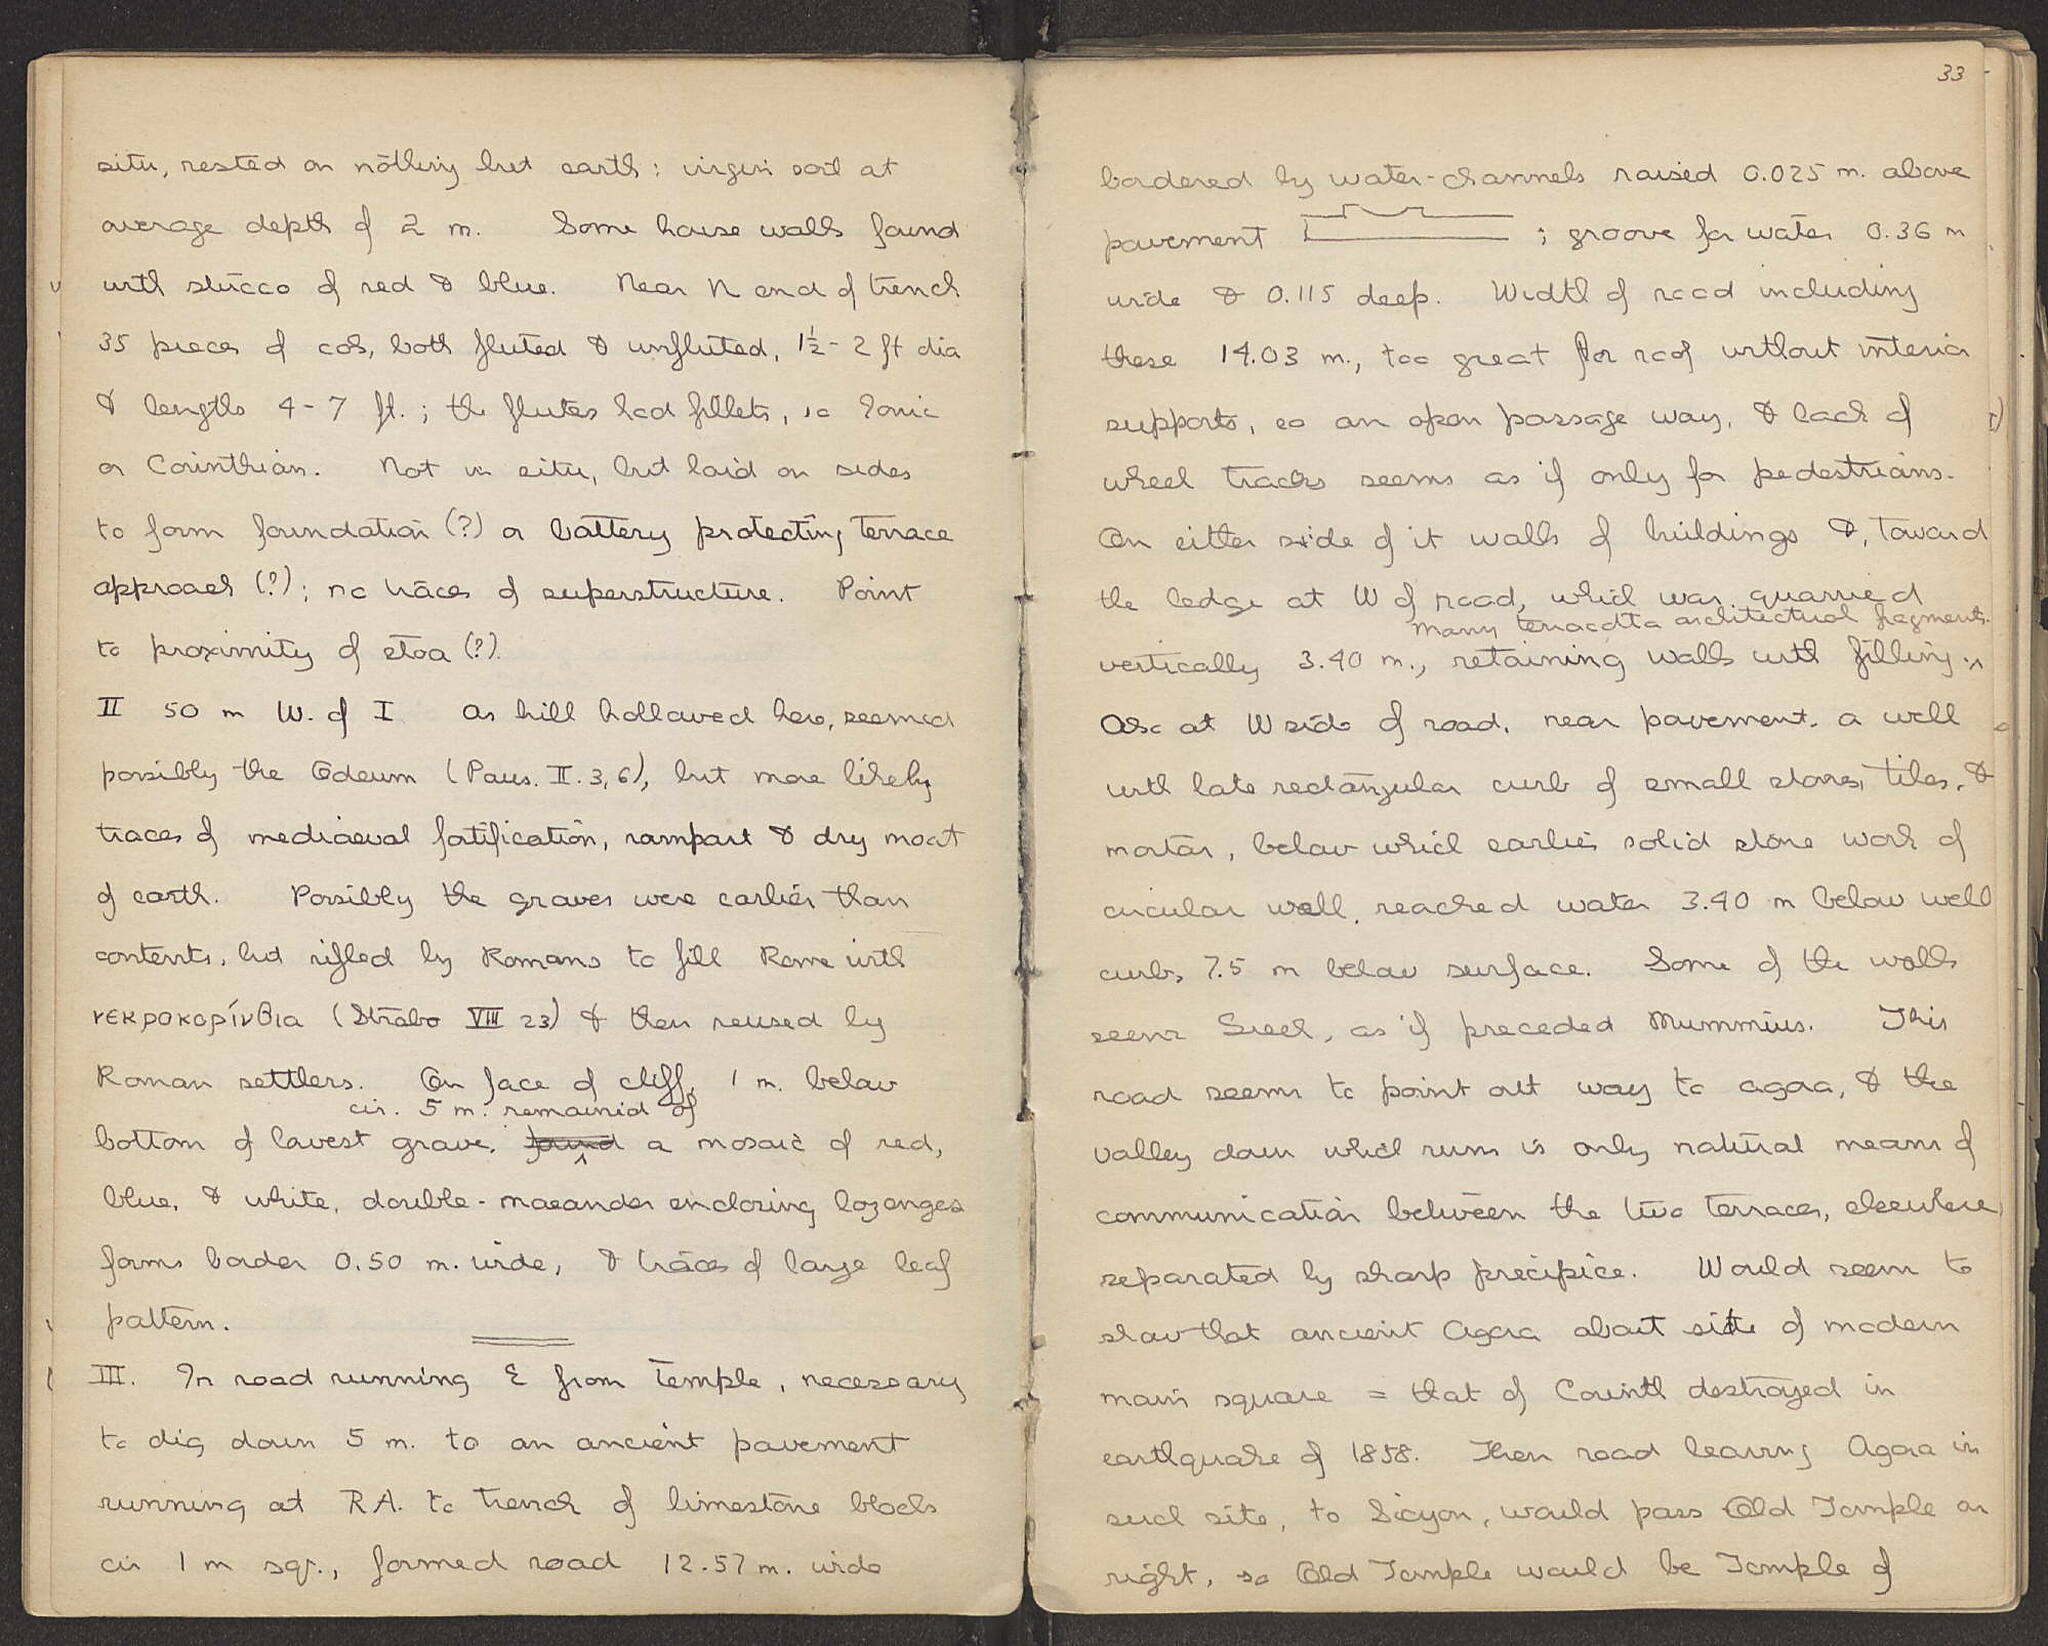 situ, rested on nothing but earth: virgin soil at
average depth of 2 m. Some house walls found
with stucco of red & blue. Near N end of trench
35 pieces of cols, both fluted & unfluted, 1½ - 2 ft dia
& lengths 4 - 7 ft.; the flutes had fillets, so Ionic
or Corinthian. Not in situ, but laid on sides
to form foundation (?) or battery protecting terrace
approach (?); no traces of superstructure. Point
to proximity of stoa (?).
II 50 m W. of I As hill hollowed here, seemed
possibly the Odeum (Paus. II. 3, 6), but more likely
traces of mediaeval fortification, rampart & dry moat
of earth. Possibly the graves were earlier than
contents, but rifled by Romans to fill Rome with
νεκροκορίνθια (Strabo VIII 23) & then reused by
Roman settlers. On face of cliff, 1 m. below
cir. 5 m. remained of
bottom of lowest grave, found a mosaic of red,
blue, & white, double-maeander enclosing lozenges
forms border 0.50 m. wide, & traces of large leaf
pattern.
III. In road running E from temple, necessary
to dig down 5 m. to an ancient pavement
running at R.A. to trench of limestone blocks
cir 1 m sq., formed road 12.57 m. wide
33
bordered by water-channels raised 0.025 m. above
pavement ; groove for water 0.36 m
wide & 0.115 deep. Width of road including
these 14.03 m., too great for roof without interior
supports, so an open passage way, & lack of
wheel tracks seems as if only for pedestrians.
On either side of it walls of buildings &, toward
the ledge at W of road, which was quarried
many terracotta architectural fragments.
vertically 3.40 m., retaining walls with filling.
Also at W side of road, near pavement, a well
with late rectangular curb of small stones, tiles, &
mortar, below which earlier solid stone work of
circular well, reached water 3.40 m below well
curb, 7.5 m below surface. Some of the walls
seem Greek, as if preceded Mummius. This
road seems to point out way to agora, & the
valley down which runs is only natural means of
communication between the two terraces, elsewhere
separated by sharp precipice. Would seem to
show that ancient Agora about site of modern
main square = that of Corinth destroyed in
earthquake of 1858. Then road leaving Agora in
such site, to Sicyon, would pass Old Temple on
right, so Old Temple would be Temple of